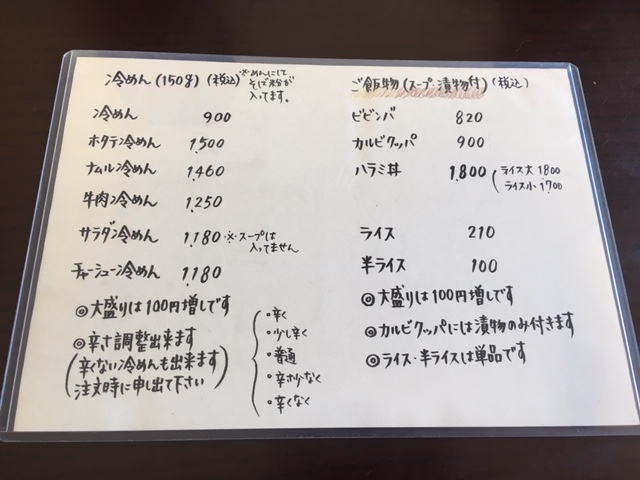 冷めん(150g)(税込)
※めんにして
そば粉が
入ってます。
冷めん 900
ホタテ冷めん 1,500
ナムル冷めん 1,460
牛肉冷めん 1,250
サラダ冷めん 1,180 ※スープは
入ってません
チャーシュー冷めん 1,180
◎大盛りは100円増しです
◎辛さ調整出来ます
(辛くない冷めんも出来ます
注文時に申し出て下さい)
・辛く
・少し辛く
・普通
・辛さ少なく
・辛くなく
ご飯物(スープ漬物付)(税込)
ビビンバ 820
カルビクッパ 900
ハラミ丼 1,800 (ライス大1800
ライス小1,700
ライス 210
半ライス 100
◎大盛りは100円増しです
◎カルビクッパには漬物のみ付きます
◎ライス・半ライスは単品です